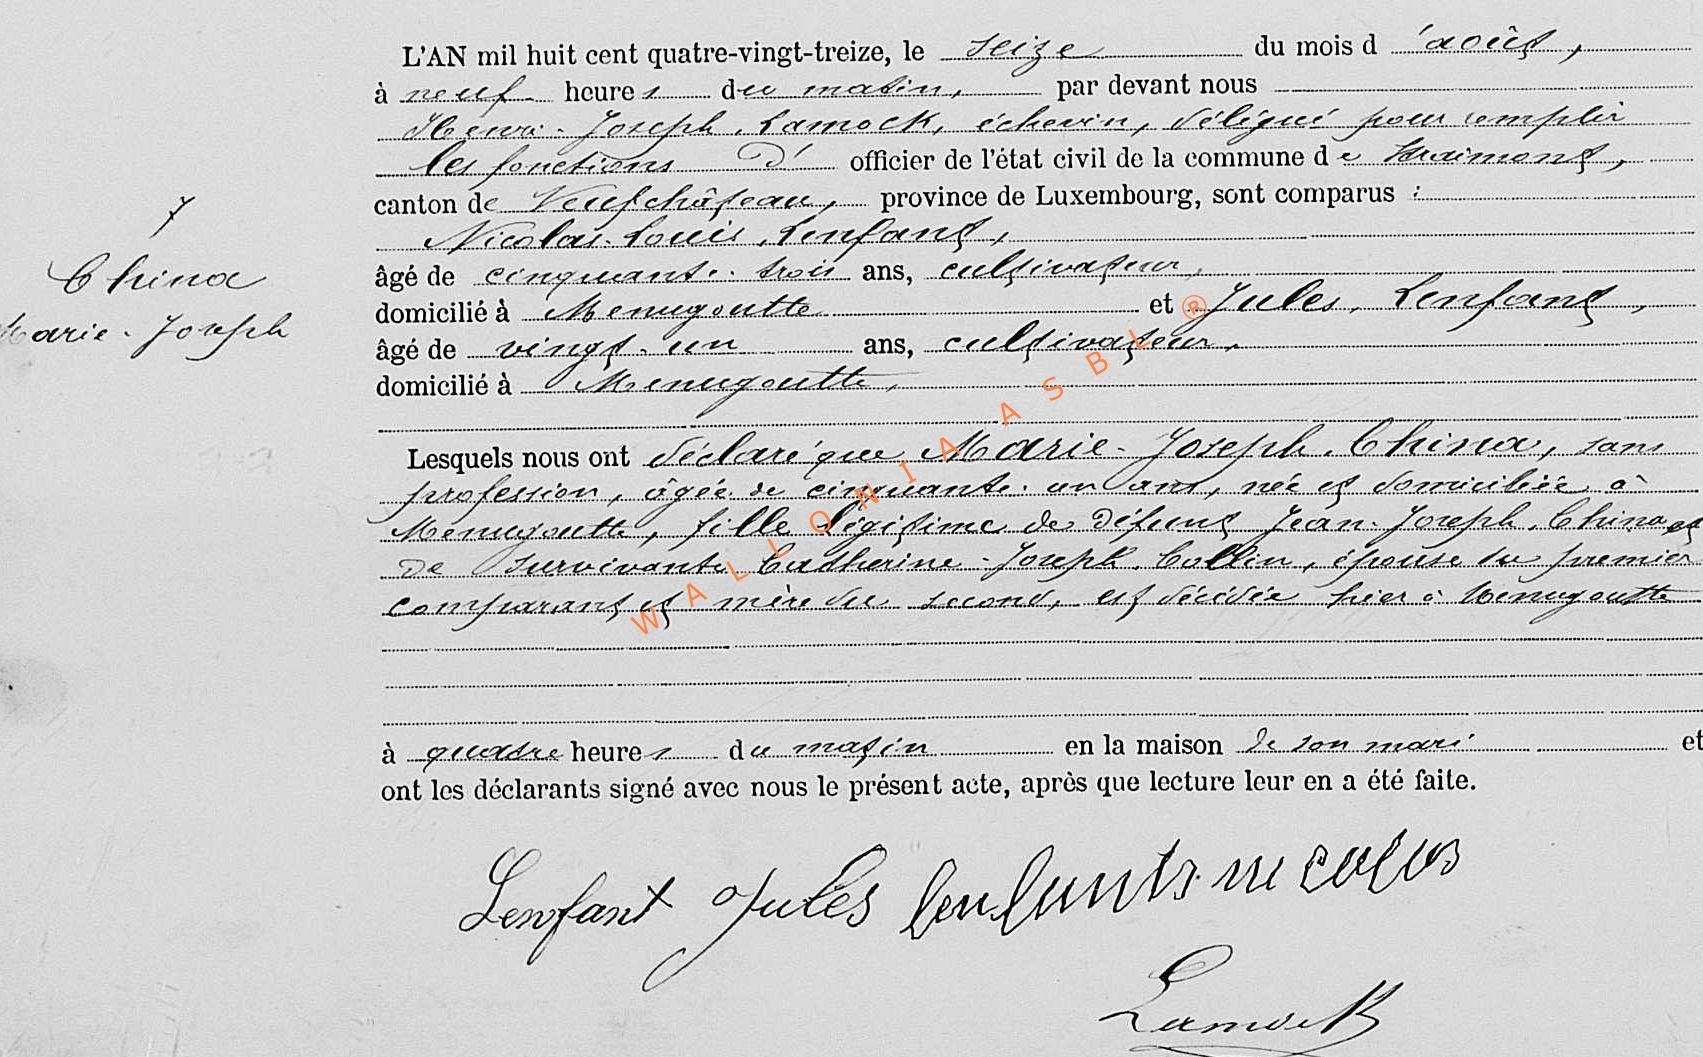 L'AN mil huit cent quatre-vingt-treize, le seize du mois d'août,
à neuf heures du matin, par devant nous
Henri-Joseph Lamock, échevin, délégué pour remplir
les fonctions d' officier de l'état civil de la commune de Straimont,
canton de Neufchâteau, province de Luxembourg, sont comparus :
Nicolas-Louis Lenfant,
âgé de cinquante-trois ans, cultivateur,
domicilié à Menugoutte et Jules Lenfant,
âgé de vingt-un ans, cultivateur,
domicilié à Menugoutte,
Lesquels nous ont déclaré que Marie-Joseph China, sans
profession, âgée de cinquante-un ans, née et domiciliée à
Menugoutte, fille légitime de défunt Jean-Joseph China et
de survivante Catherine-Joseph Collin, épouse du premier
comparant et mère du second, est décédée hier à Menugoutte
à quatre heures du matin en la maison de son mari et
ont les déclarants signé avec nous le présent acte, après que lecture leur en a été faite.
Lenfant Jules lenfants nicolas
Lamock
China
Marie-Joseph
WALLONIA ASBL ®